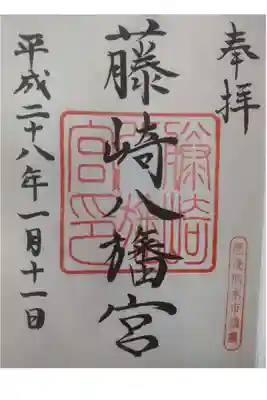 奉拝
藤崎八旛宮
平成二十八年一月十一日